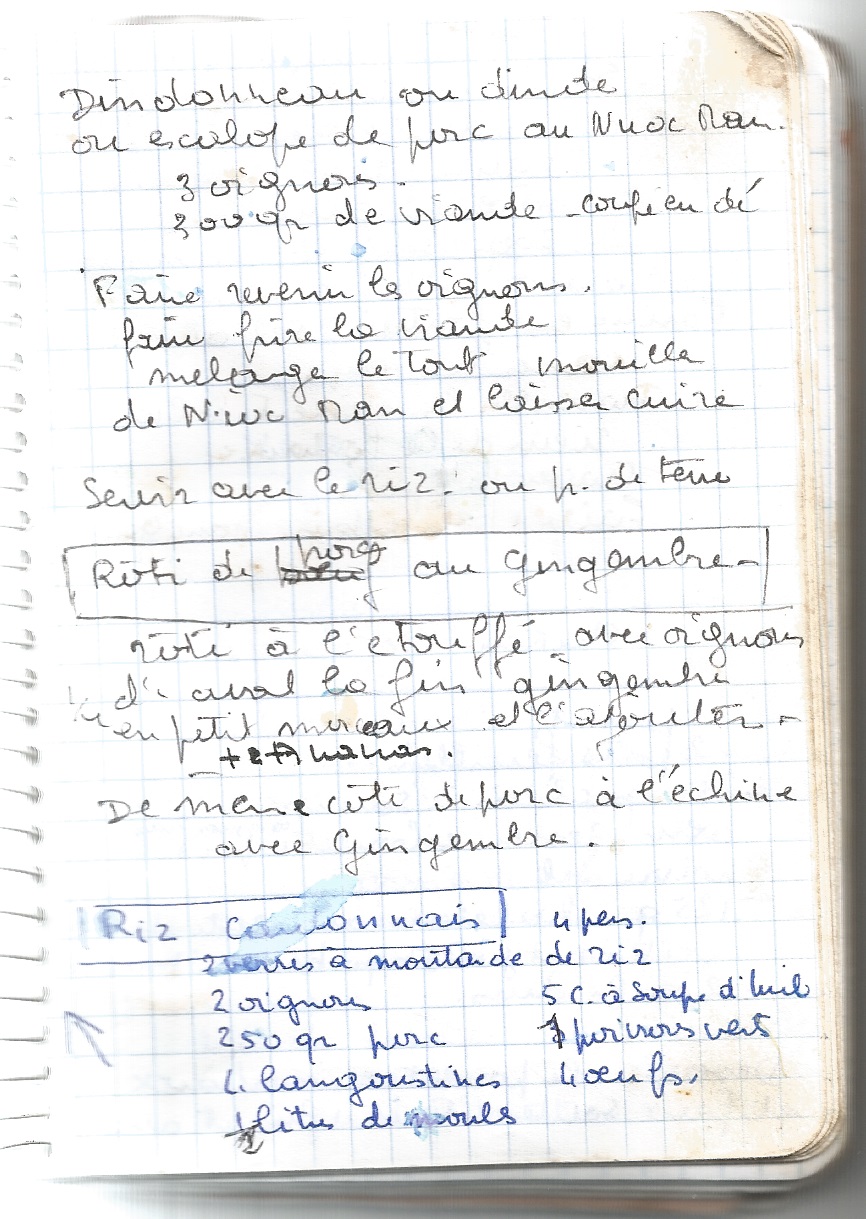 Dindonneau ou dinde
ou escalope de porc au Nuoc Man.
3 oignons.
300 gr de viande coupé en dé
Faire revenir les oignons.
faire frire la viande
melanger le tout mouiller
de Nuoc Man et laisser cuire
Servir avec le riz. ou p. de terre
Rôti de porc au gingembre -
rôti à l'étouffé avec oignons
avant la fin gingembre
en petit morceaux et l'ajouter -
+ Ananas.
De meme côte de porc à l'échine
avec Gingembre.
Riz Cantonnais 4 pers.
2 verres à moutarde de riz
2 oignons 5 c. à Soupe d'huile
250 gr porc 1 poivrons vert
4 langoustines 4 oeufs.
litres de mouls